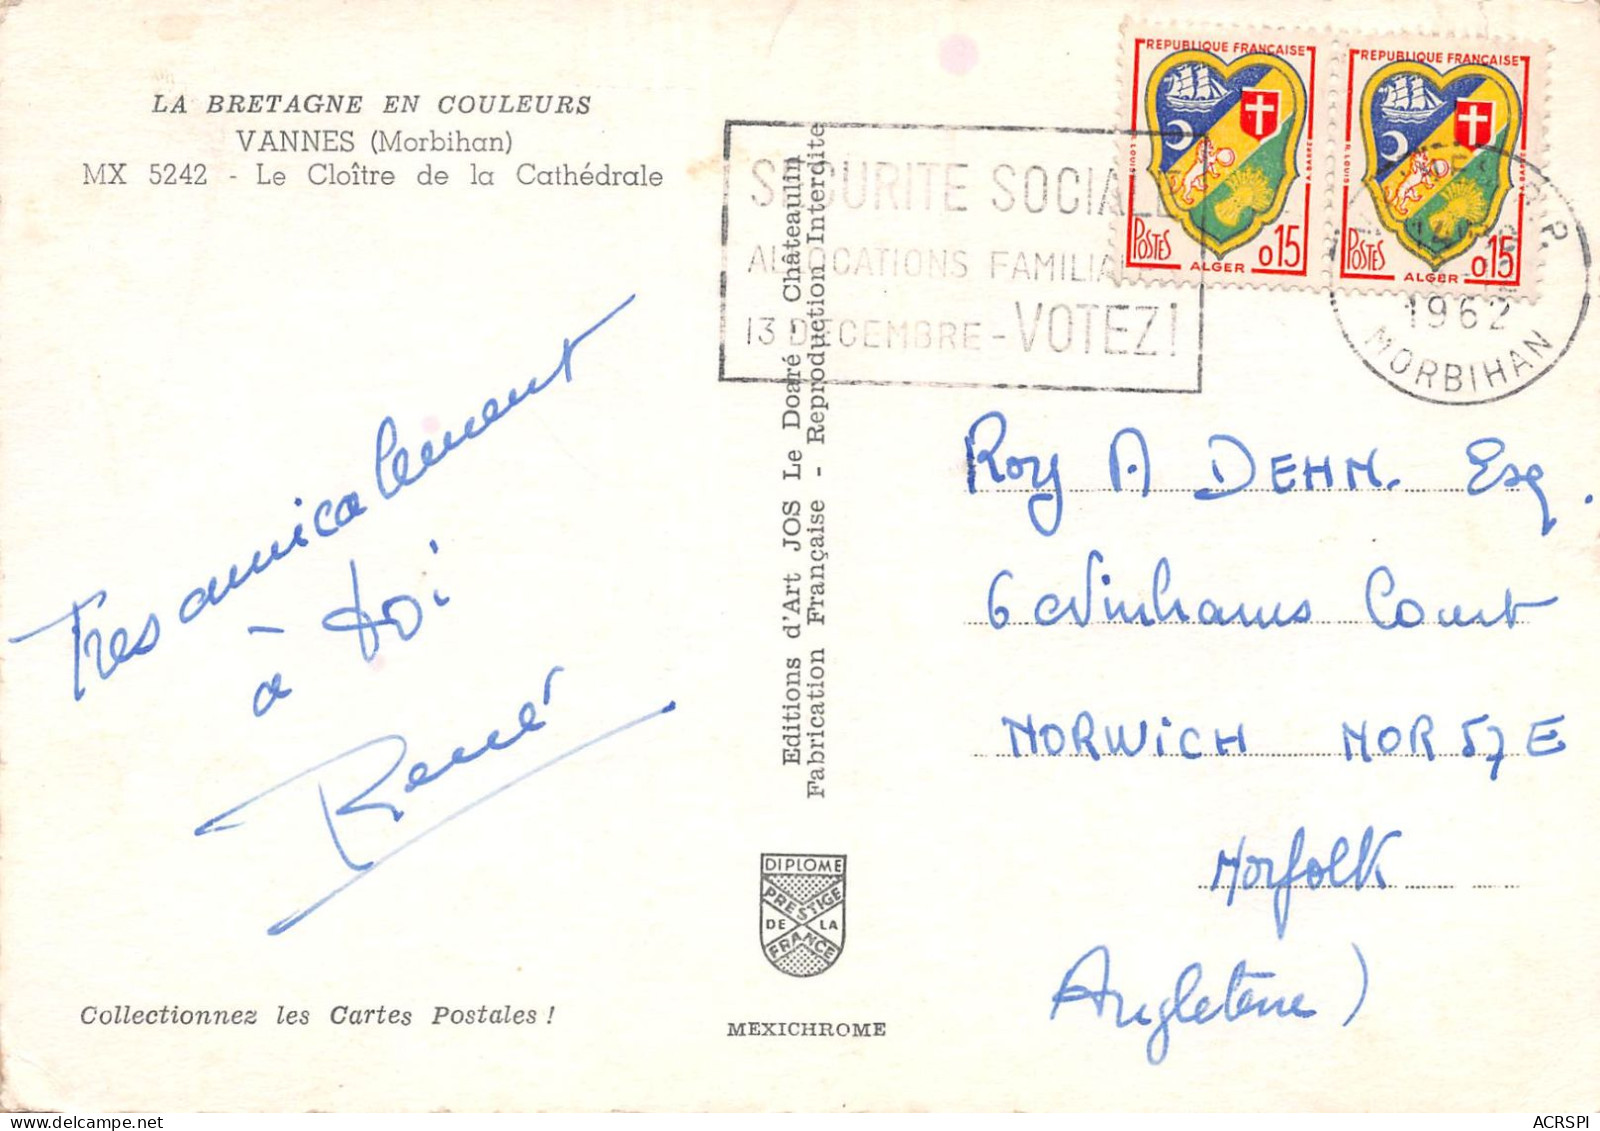 LA BRETAGNE EN COULEURS
VANNES (Morbihan)
MX 5242 - Le Cloître de la Cathédrale
Tres amicalement
à toi
René
Collectionnez les Cartes Postales !
Editions d'Art JOS Le Doaré - Châteaulin
Fabrication Française - Reproduction Interdite
DIPLOME
PRESTIGE
DE LA
FRANCE
MEXICHROME
SECURITE SOCIALE
ALLOCATIONS FAMILIALES
13 DECEMBRE - VOTEZ!
REPUBLIQUE FRANÇAISE
POSTES
ALGER
0,15
REPUBLIQUE FRANÇAISE
POSTES
ALGER
0,15
VANNES R.P.
1962
MORBIHAN
Roy A DEHN. Esq.
6 Winhams Court
NORWICH NOR 57E
Norfolk
Angleterre)
ACRSPI